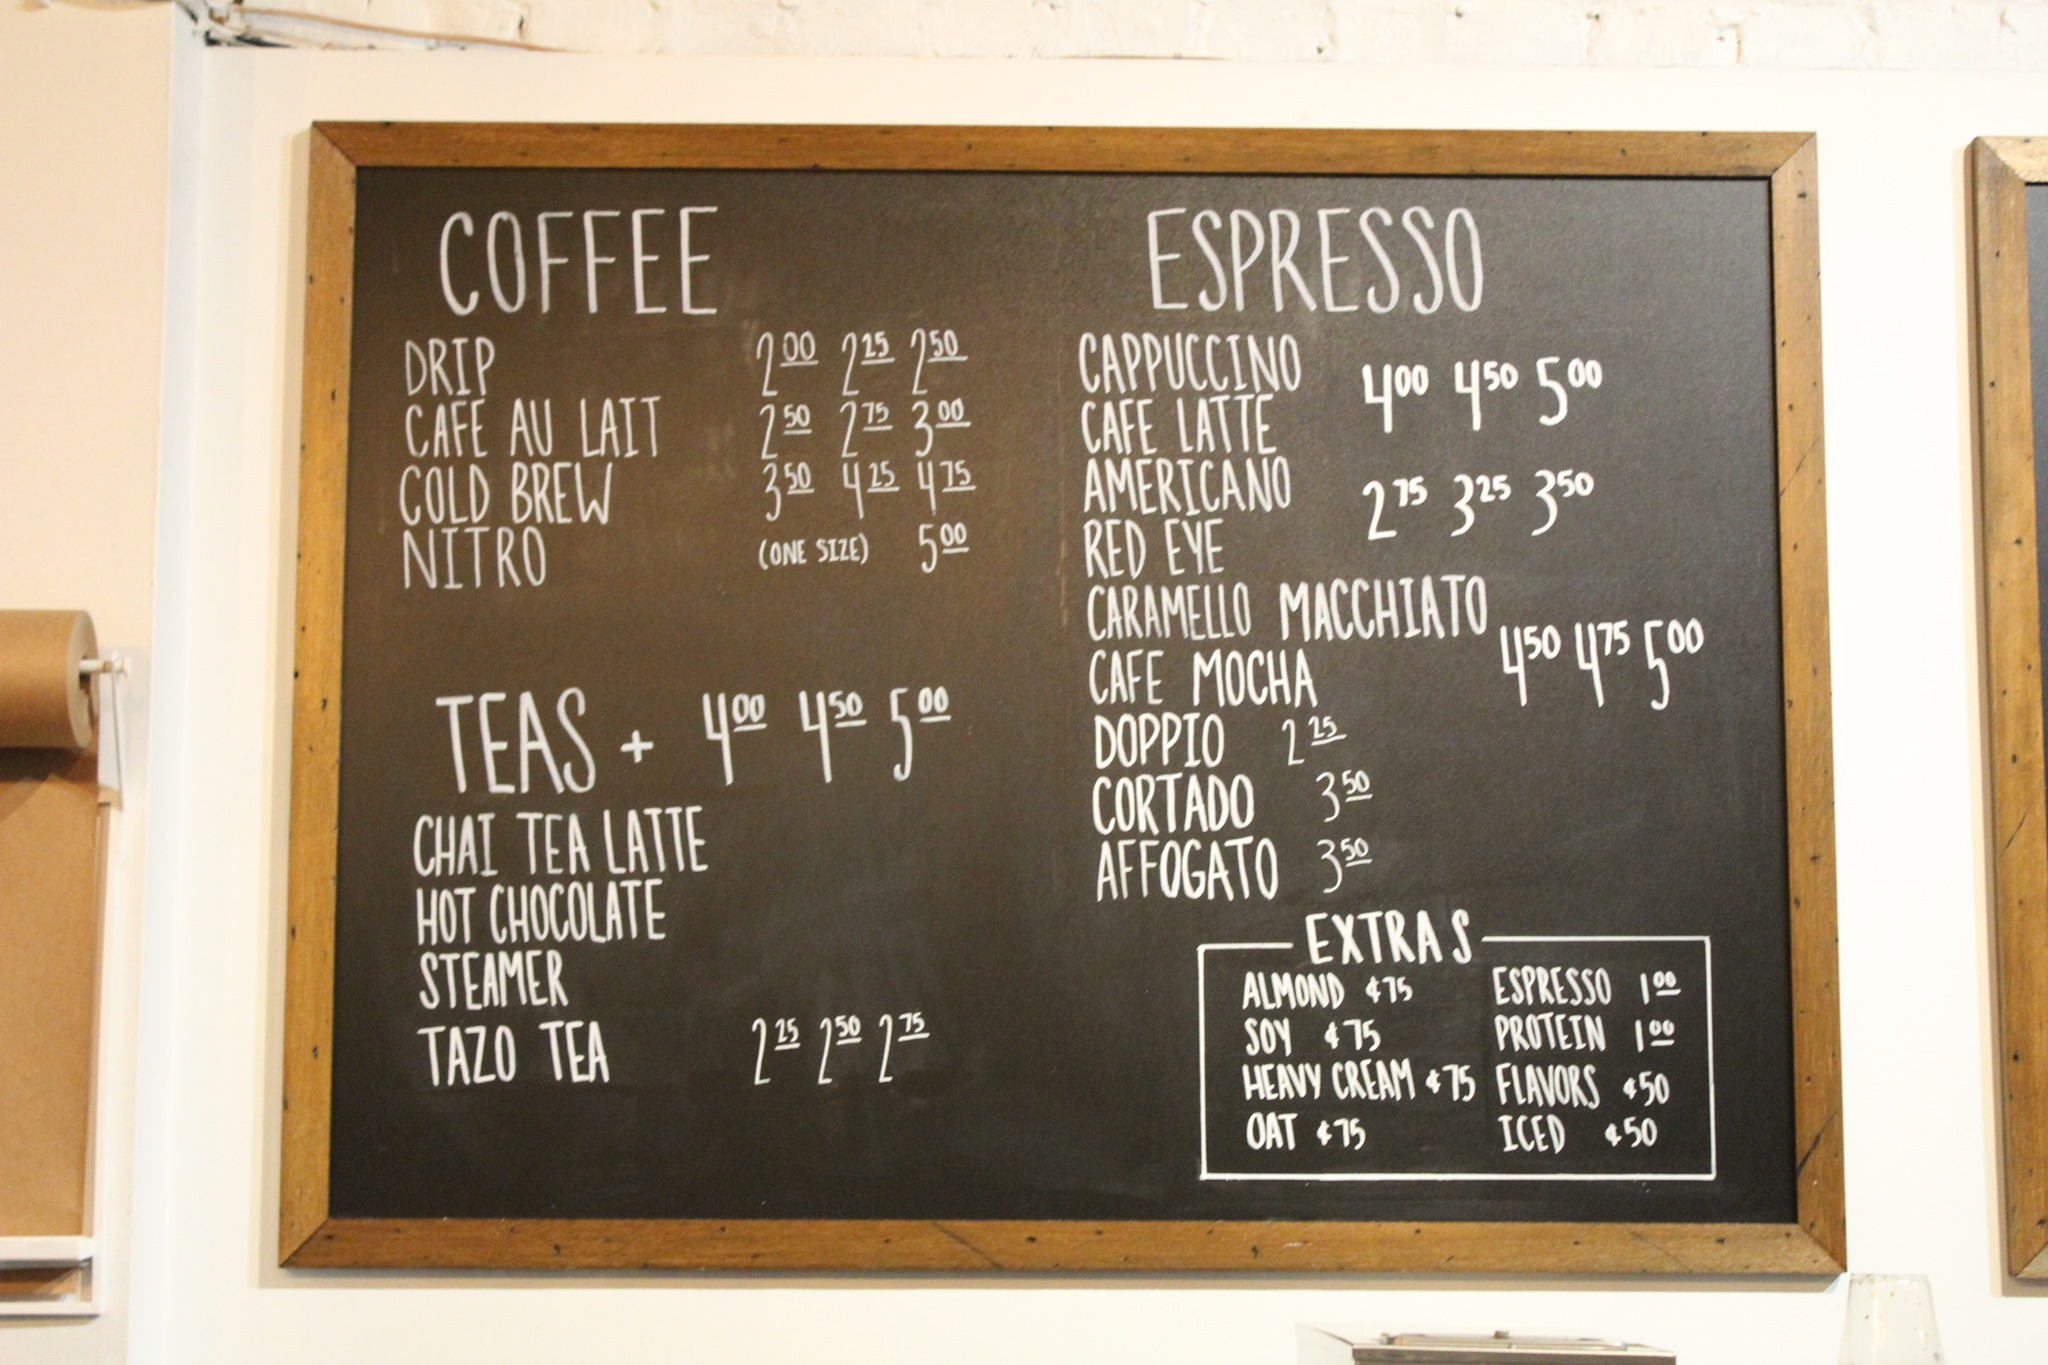 COFFEE
DRIP 2.00 2.25 2.50
CAFE AU LAIT 2.50 2.75 3.00
COLD BREW 3.50 4.25 4.75
NITRO (ONE SIZE) 5.00
TEAS + 4.00 4.50 5.00
CHAI TEA LATTE
HOT CHOCOLATE
STEAMER
TAZO TEA 2.25 2.50 2.75
ESPRESSO
CAPPUCCINO
4.00 4.50 5.00
CAFE LATTE
AMERICANO
2.75 3.25 3.50
RED EYE
CARAMELLO MACCHIATO
4.50 4.75 5.00
CAFE MOCHA
DOPPIO 2.25
CORTADO 3.50
AFFOGATO 3.50
EXTRAS
ALMOND ¢75
SOY ¢75
HEAVY CREAM ¢75
OAT ¢75
ESPRESSO 1.00
PROTEIN 1.00
FLAVORS ¢50
ICED ¢50